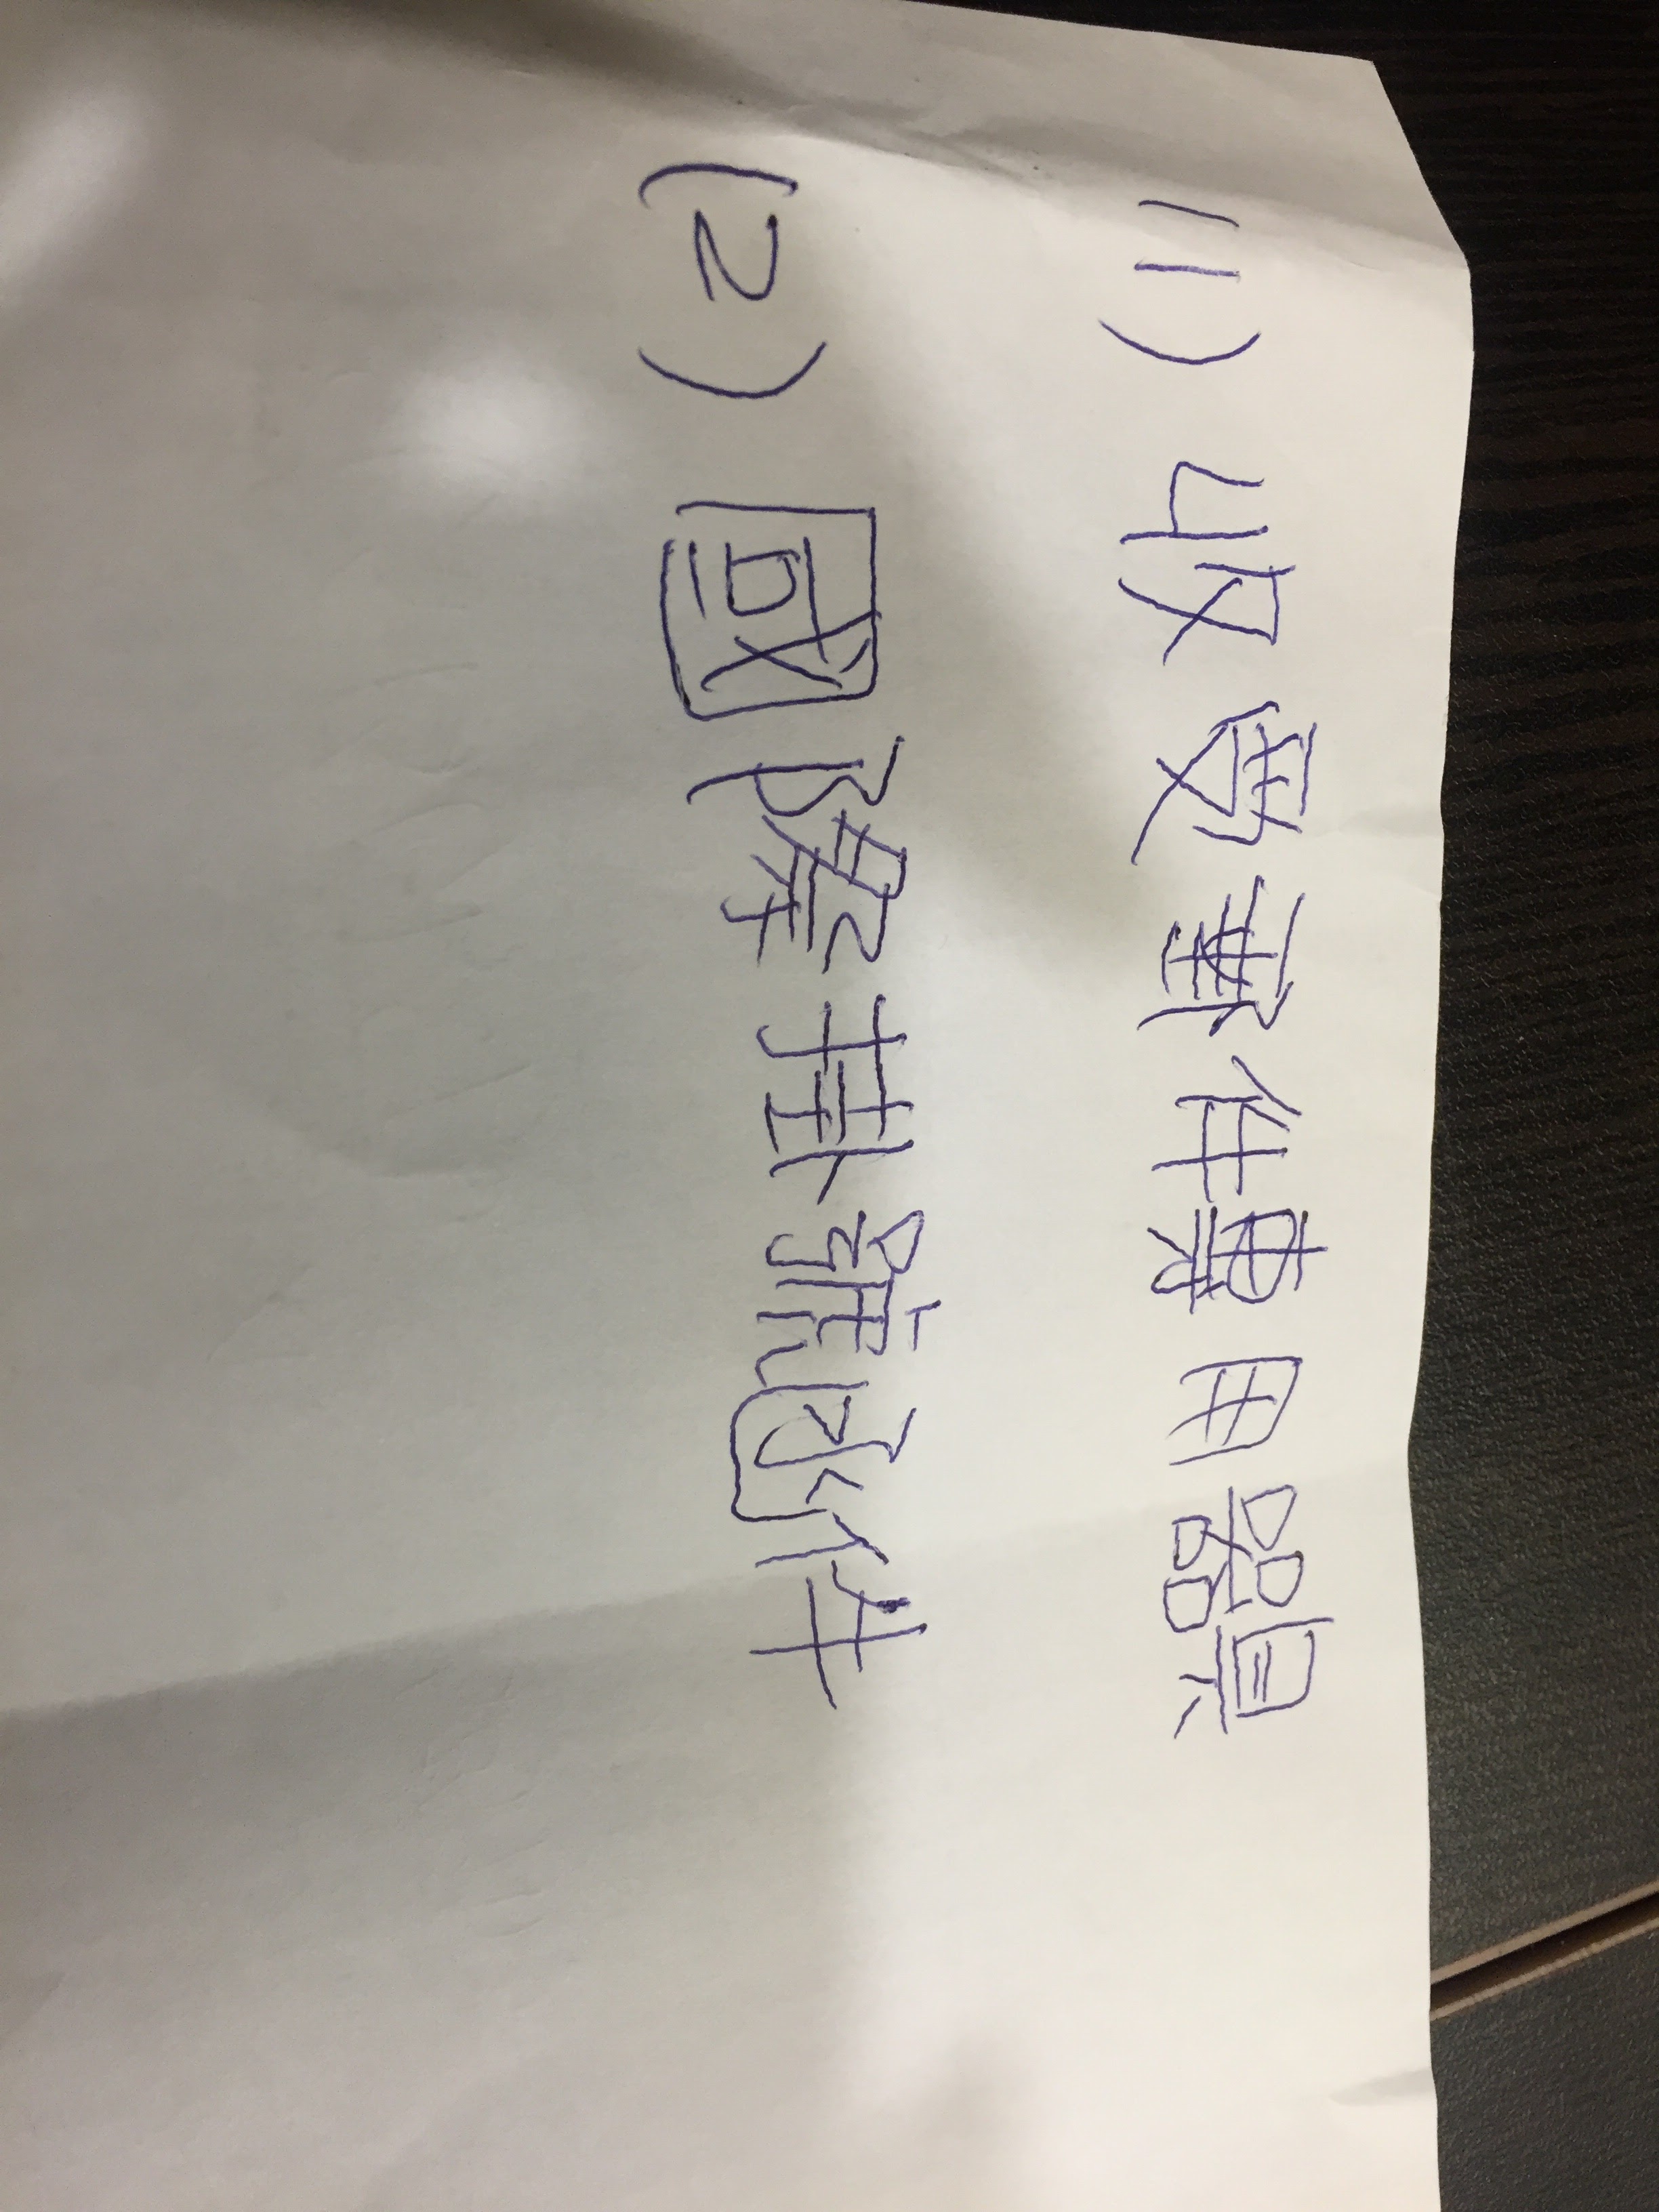 (1) 收受郵件專用器具
(2) 國際掛號函件